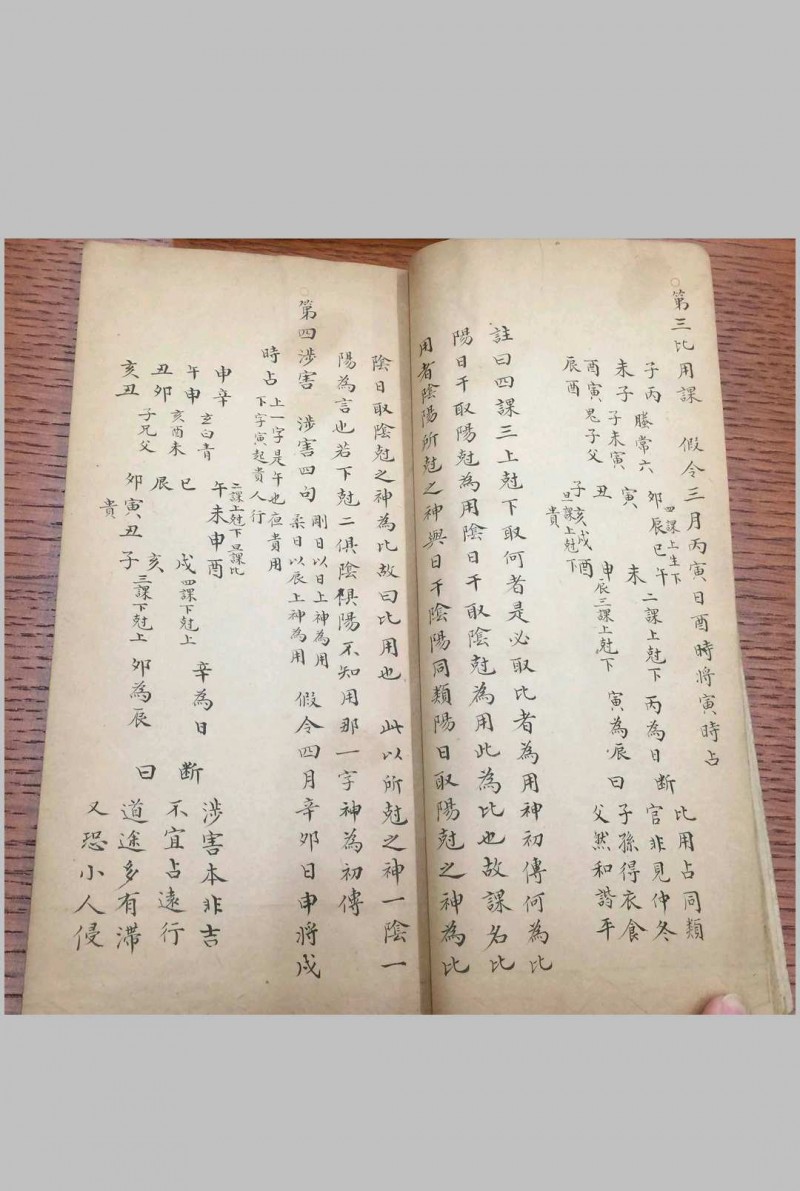 第三比用課 假令三月丙寅日酉時將寅時占
子丙 螣常六 四課上生下
未子 子未寅 卯辰巳午
酉寅 鬼子父 寅 未 二課上尅下 丙為日
辰酉 丑 申 辰三課上尅下 寅為辰
子亥戌酉
旦課上尅下
貴
断曰
比用占同類
官非見仲冬
子孫得衣食
父然和諧平
註曰四課三上尅下取何者是必取比者為用神初傳何為比
陽日干取陽尅為用陰日干取陰尅為用此為比也故課名比
用者陰陽所尅之神與日干陰陽同類陽日取陽尅之神為比
陰日取陰尅之神為比故曰比用也 此以所尅之神一陰一
陽為言也若下尅二俱陰俱陽不知用那一字神為初傳
第四涉害 涉害四句 剛日以日上神為用 柔日以辰上神為用 假令四月辛卯日申將戌
時占 上一字是午也夜貴用 下字寅起貴人行
申辛 玄白青 二課上尅下旦課比
午申 亥酉未 午未申酉
丑卯 子兄父 辰 巳 戌 四課下尅上 辛為日
亥丑 卯寅丑子 亥 三課下尅上 卯為辰
貴
断曰
涉害本非吉
不宜占遠行
道途多有滯
又恐小人侵